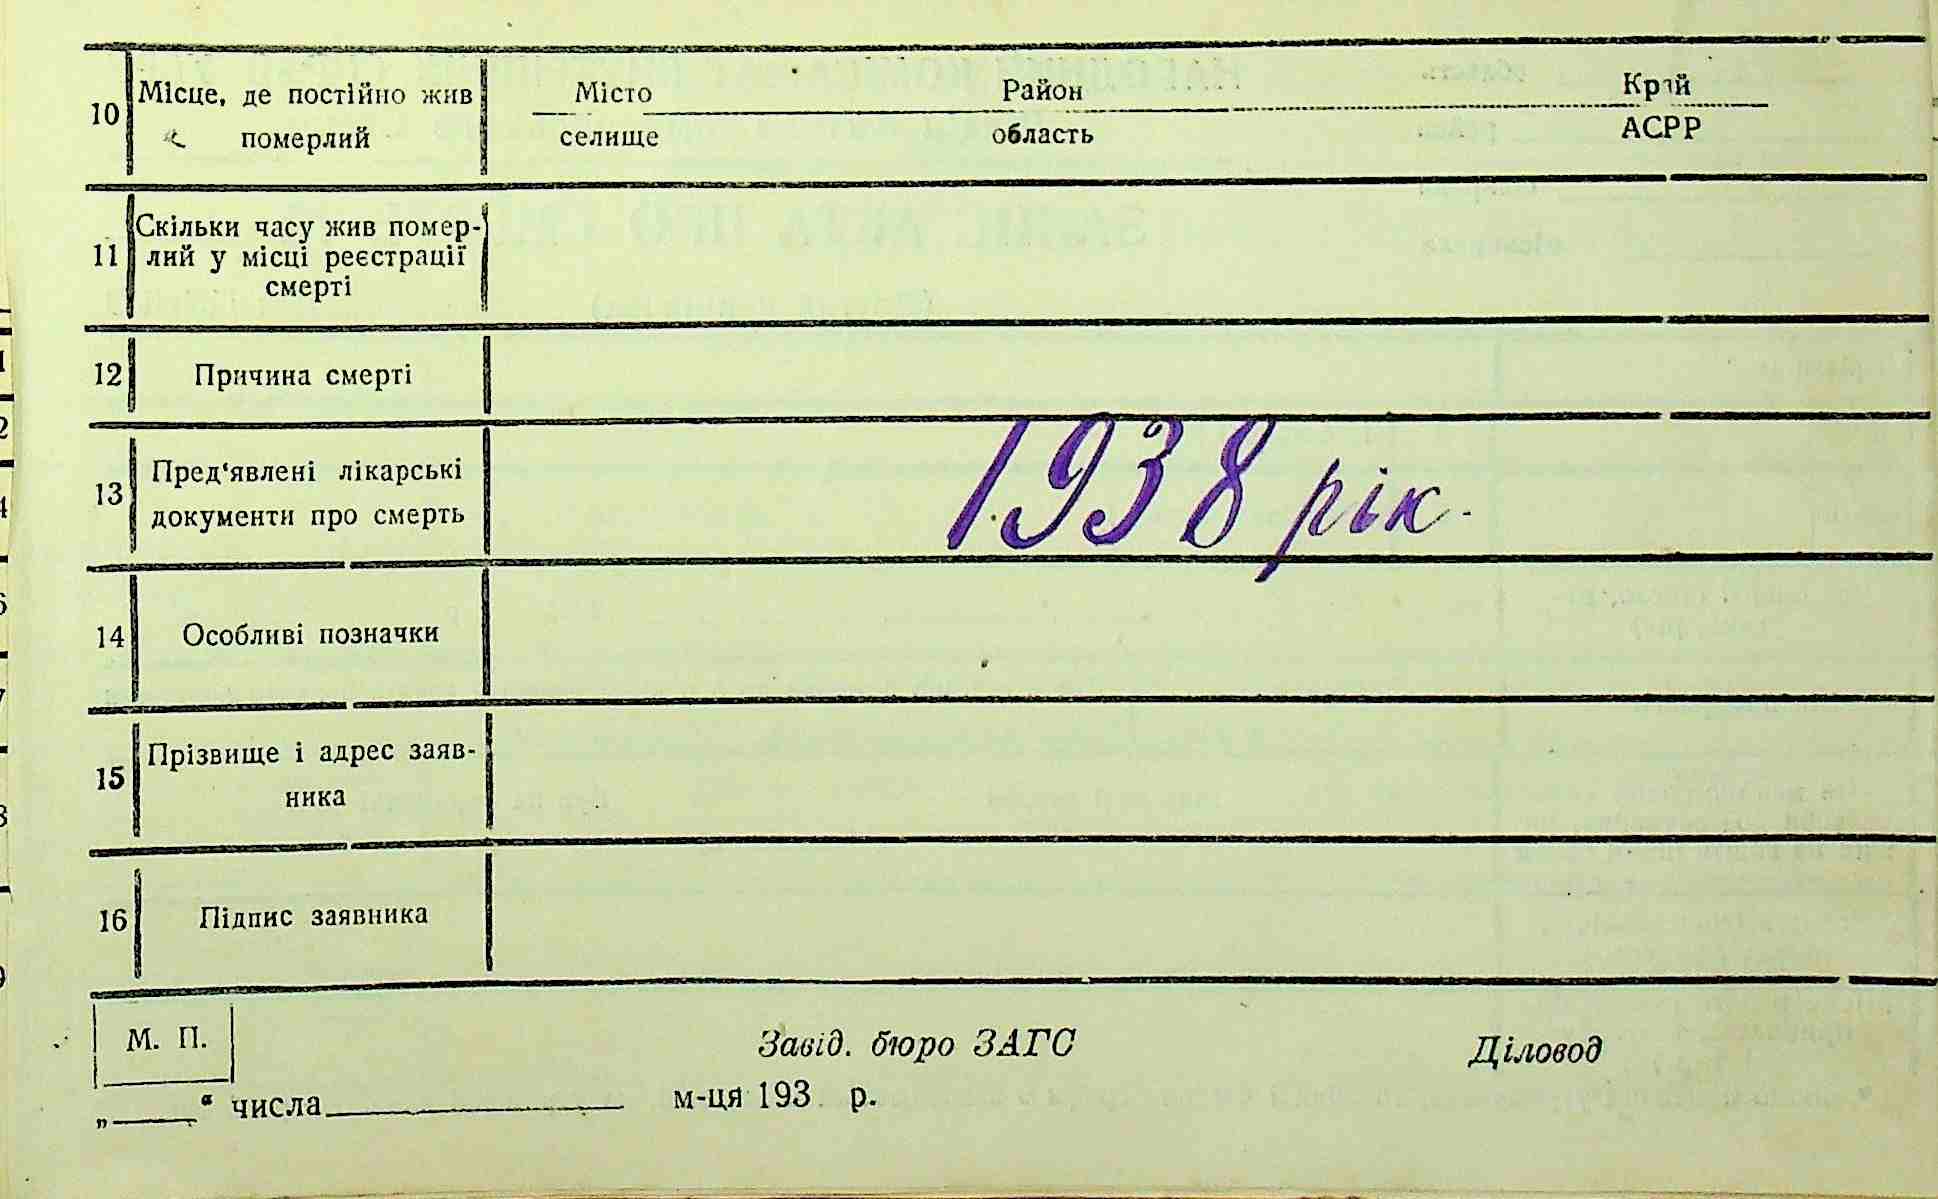 10 Місце, де постійно жив Місто Район Край
померлий селище область АСРР
Скільки часу жив помер-
11 лий у місці реєстрації
смерті
12 Причина смерті
1938 рік.
13 Пред‘явлені лікарські
документи про смерть
14 Особливі позначки
15 Прізвище і адрес заяв-
ника
16 Підпис заявника
М. П. Завід. бюро ЗАГС Діловод
„ “ числа м-ця 193 р.